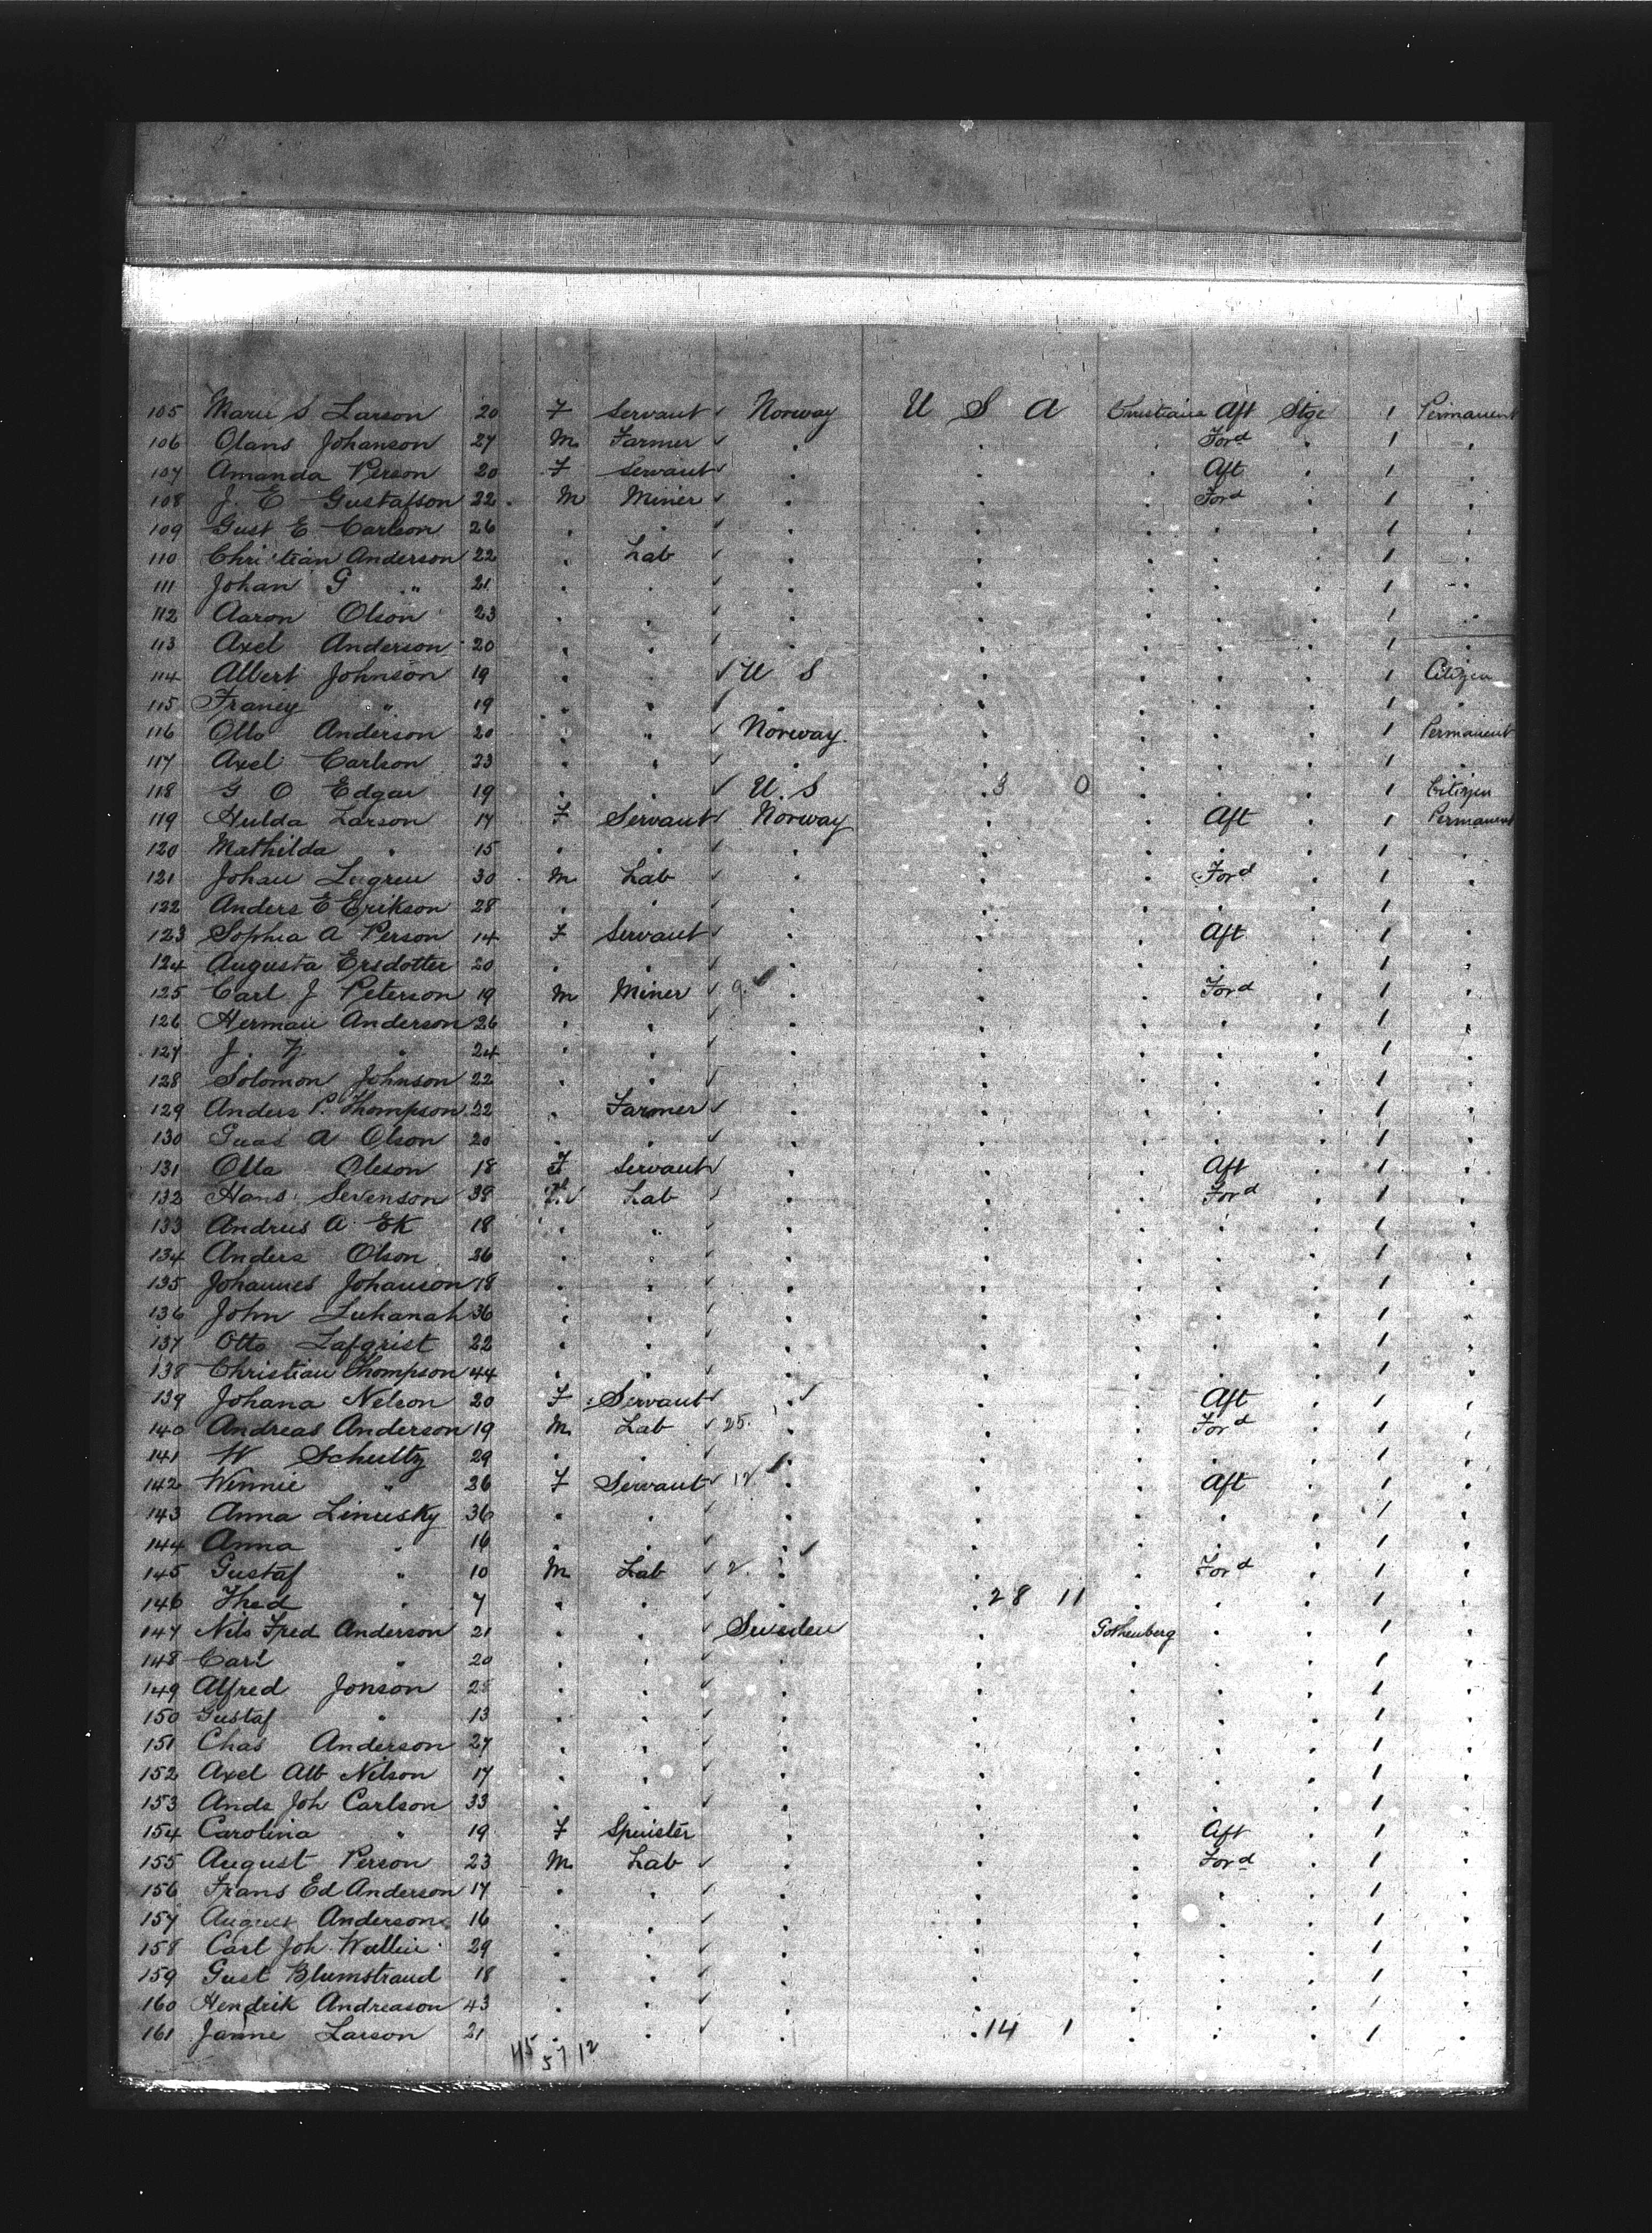 105 Marie S Larson 20 F Servant ✓ Norway U S A Christiania Aft Stge 1 Permanent
106 Olans Johanson 27 M Farmer ✓ . . . Ford . 1 .
107 Amanda Person 20 F Servant ✓ . . . Aft . 1 .
108 J. E Gustafson 22 M Miner ✓ . . . Ford . 1 .
109 Gust E Carlson 26 . . ✓ . . . . . 1 .
110 Christian Anderson 22 . Lab ✓ . . . . . 1 .
111 Johan G " 21 . . ✓ . . . . . 1 .
112 Aaron Olson 23 . . ✓ . . . . . 1 .
113 Axel Anderson 20 . . ✓ . . . . . 1 .
114 Albert Johnson 19 . . ✓ U S . . . . 1 Citizen
115 Franey " 19 . . ✓ . . . . . 1 .
116 Otto Anderson 20 . " ✓ Norway . . . . 1 Permanent
117 Axel Carlson 23 . . ✓ . . . . . 1 .
118 G O Edgar 19 . . ✓ U. S 3 0 . . . 1 Citizen
119 Hulda Larson 17 F Servant ✓ Norway . . Aft . 1 Permanent
120 Mathilda " 15 . . ✓ . . . . . 1 .
121 Johan Lugren 30 M Lab ✓ . . . Ford . 1 .
122 Anders E Erikson 28 . . ✓ . . . . . 1 .
123 Sophia A Person 14 F Servant ✓ . . . Aft . 1 .
124 Augusta Ersdotter 20 . . ✓ . . . . . 1 .
125 Carl J Peterson 19 M Miner ✓ 9 ✓ . . . Ford . 1 .
126 Herman Anderson 26 . . ✓ . . . . . 1 .
127 J. " 24 . . ✓ . . . . . 1 .
128 Solomon Johnson 22 . . ✓ . . . . . 1 .
129 Anders P. Thompson 22 . Farmer ✓ . . . . . 1 .
130 A Olson 20 . . ✓ . . . . . 1 .
131 Olla Oleson 18 F Servant ✓ . . . Aft . 1 .
132 Hans Sevenson 39 M Lab ✓ . . . Ford . 1 .
133 Andrus A. Ek 18 . " ✓ . . . . . 1 .
134 Anders Olson 26 . . ✓ . . . . . 1 .
135 Johannes Johanson 18 . . ✓ . . . . . 1 .
136 John Luhanah 36 . . ✓ . . . . . 1 .
137 Otto Lafgrist 22 . . ✓ . . . . . 1 .
138 Christian Thompson 44 . . ✓ . . . . . 1 .
139 Johana Nelson 20 F Servant ✓ . ✓ . . Aft . 1 .
140 Andreas Anderson 19 M Lab ✓ 25. . . . Ford . 1 .
141 W Schultz 29 . . ✓ . . . . . 1 .
142 Winnie " 26 F Servant ✓ 12 . . . Aft . 1 .
143 Anna Linusky 36 . . ✓ . . . . . 1 .
144 Anna " 16 . . ✓ . ✓ . . . . 1 .
145 Gustaf " 10 M Lab ✓ 2. . . . Ford . 1 .
146 Thed " 7 . . ✓ . 28 11 . . . 1 .
147 Nils Fred Anderson 21 . . ✓ Sweden Gothenberg . . 1 .
148 Carl " 20 . . ✓ . . . . . 1 .
149 Alfred Jonson 25 . . ✓ . . . . . 1 .
150 Gustaf " 13 . . ✓ . . . . . 1 .
151 Chas Anderson 27 . . ✓ . . . . . 1 .
152 Axel Alb Nilson 17 . . ✓ . . . . . 1 .
153 Ands Joh Carlson 33 . . ✓ . . . . . 1 .
154 Carolina " 19 F Spinster . . . Aft . 1 .
155 August Person 23 M Lab ✓ . . . Ford . 1 .
156 Frans Ed Anderson 17 . . ✓ . . . . . 1 .
157 August Anderson 16 . . ✓ . . . . . 1 .
158 Carl Joh Wallin 29 . . ✓ . . . . . 1 .
159 Gust Blumstrand 18 . . ✓ . . . . . 1 .
160 Hendrik Andreason 43 . . ✓ . . . . . 1 .
161 Janne Larson 21 . . ✓ . 14 1 . . . 1 .
45 57 12